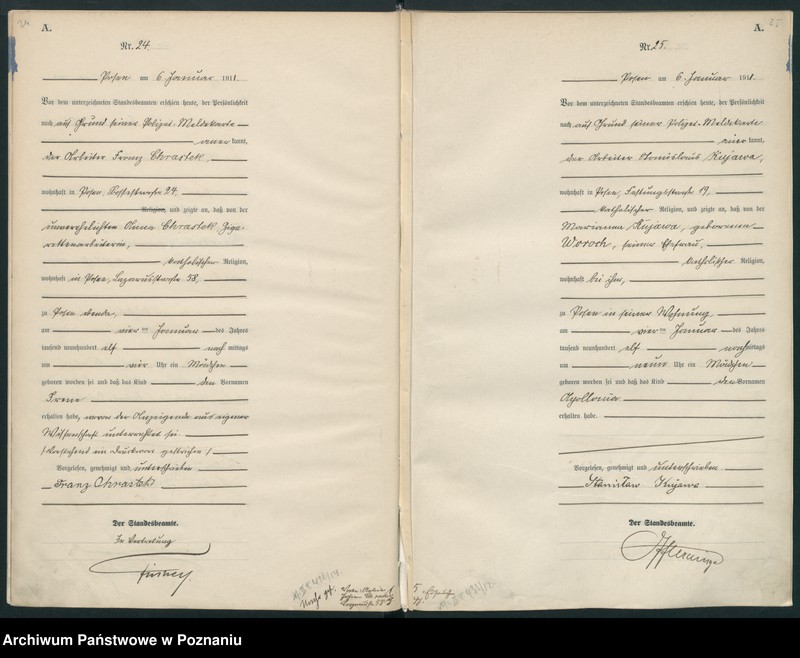 A.
Nr. 24.
Posen am 6 Januar 1911.
Vor dem unterzeichneten Standesbeamten erschien heute, der Persönlichkeit
nach auf Grund seiner Polizei-Meldekarte
anerkannt,
der Arbeiter Franz Chrastek,
wohnhaft in Posen, 24.
Religion, und zeigte an, daß von der
unverehelichten Anna Chrastek, Ziga-
rettenarbeiterin,
katholischer Religion,
wohnhaft in Posen, Lazarusstraße 58,
zu Posen ebenda,
am vier ten Januar des Jahres
tausend neunhundert elf nach mittags
um vier Uhr ein Mädchen
geboren worden sei und daß das Kind den Vornamen
Irene
erhalten habe, wovon der Anzeigende aus eigener
Wissenschaft unterrichtet sei.
/Vorstehend ein Druckwort gestrichen/
Vorgelesen, genehmigt und unterschrieben
Franz Chrastek
Der Standesbeamte.
In Vertretung
A.
Nr. 25.
Posen am 6 Januar 1911.
Vor dem unterzeichneten Standesbeamten erschien heute, der Persönlichkeit
nach auf Grund seiner Polizei-Meldekarte
anerkannt,
der Arbeiter Stanislaus Kujawa,
wohnhaft in Posen, Festungsstraße 19,
katholischer Religion, und zeigte an, daß von der
Marianna Kujawa, geborenen
Woroch, seiner Ehefrau,
katholischer Religion,
wohnhaft bei ihm,
zu Posen in seiner Wohnung
am vier ten Januar des Jahres
tausend neunhundert elf nachmittags
um neun Uhr ein Mädchen
geboren worden sei und daß das Kind den Vornamen
Apollonia
erhalten habe.
Vorgelesen, genehmigt und unterschrieben
Stanisław Kujawa
Der Standesbeamte.
Archiwum Państwowe w Poznaniu